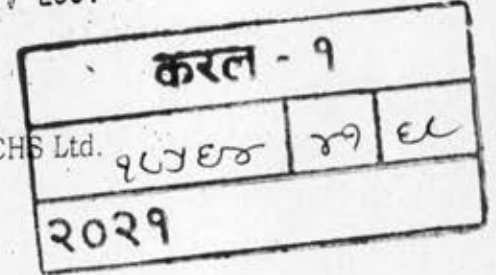 करल - १
CHS Ltd. १८५६४ ४१ ६८
२०२१